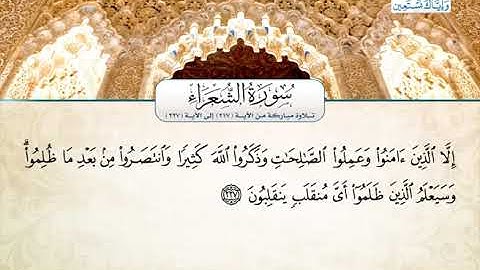 وَإِيَّاكَ نَسْتَعِينُ
سُورَةُ الشُّعَرَاءِ
تلاوة مباركة من الآية (٢١٧) إلى الآية (٢٢٧)
إِلَّا ٱلَّذِينَ ءَامَنُوا۟ وَعَمِلُوا۟ ٱلصَّـٰلِحَـٰتِ وَذَكَرُوا۟ ٱللَّهَ كَثِيرًا وَٱنتَصَرُوا۟ مِنۢ بَعْدِ مَا ظُلِمُوا۟ ۗ
وَسَيَعْلَمُ ٱلَّذِينَ ظَلَمُوٓا۟ أَىَّ مُنقَلَبٍ يَنقَلِبُونَ ٢٢٧